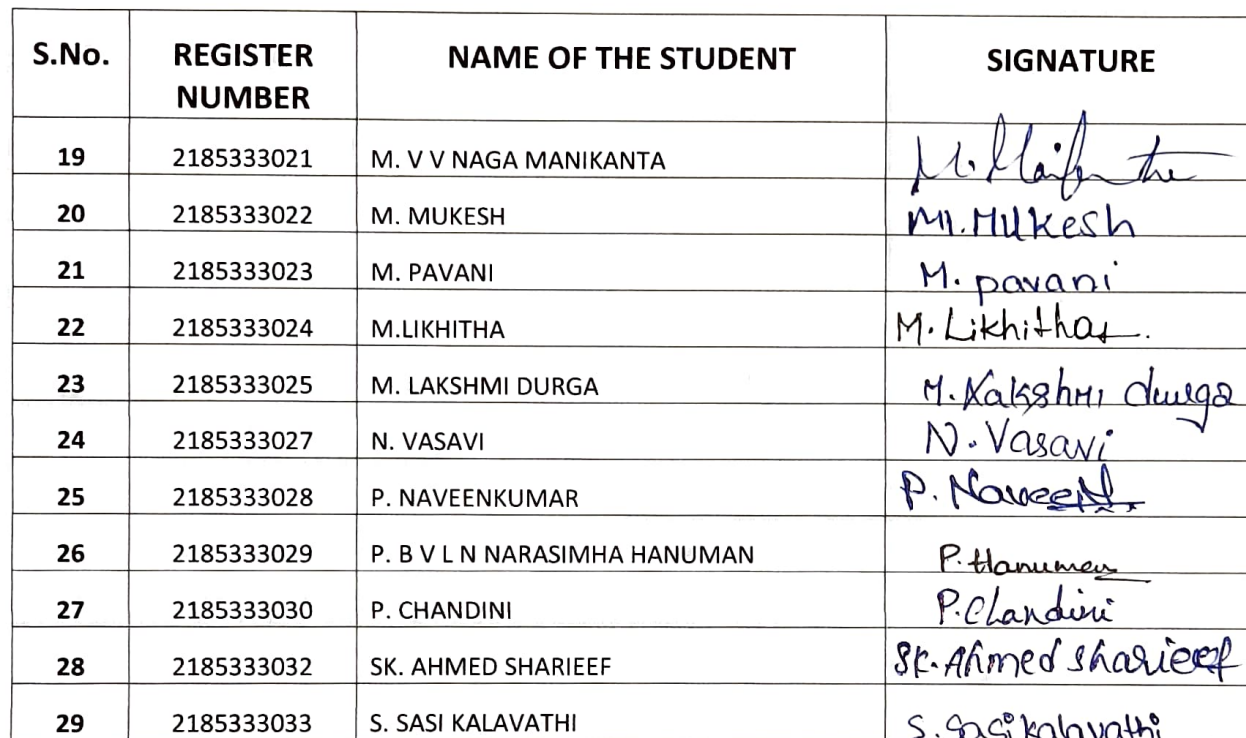 S.No. REGISTER NUMBER NAME OF THE STUDENT SIGNATURE
19 2185333021 M. V V NAGA MANIKANTA
20 2185333022 M. MUKESH M.MUKesh
21 2185333023 M. PAVANI M. pavani
22 2185333024 M.LIKHITHA M. Likhitha.
23 2185333025 M. LAKSHMI DURGA M. Lakshmi durga
24 2185333027 N. VASAVI N. Vasavi
25 2185333028 P. NAVEENKUMAR P. Naveen
26 2185333029 P. B V L N NARASIMHA HANUMAN P. Hanuman
27 2185333030 P. CHANDINI P. Chandini
28 2185333032 SK. AHMED SHARIEEF SK. Ahmed sharieef
29 2185333033 S. SASI KALAVATHI S. Sasi kalavathi